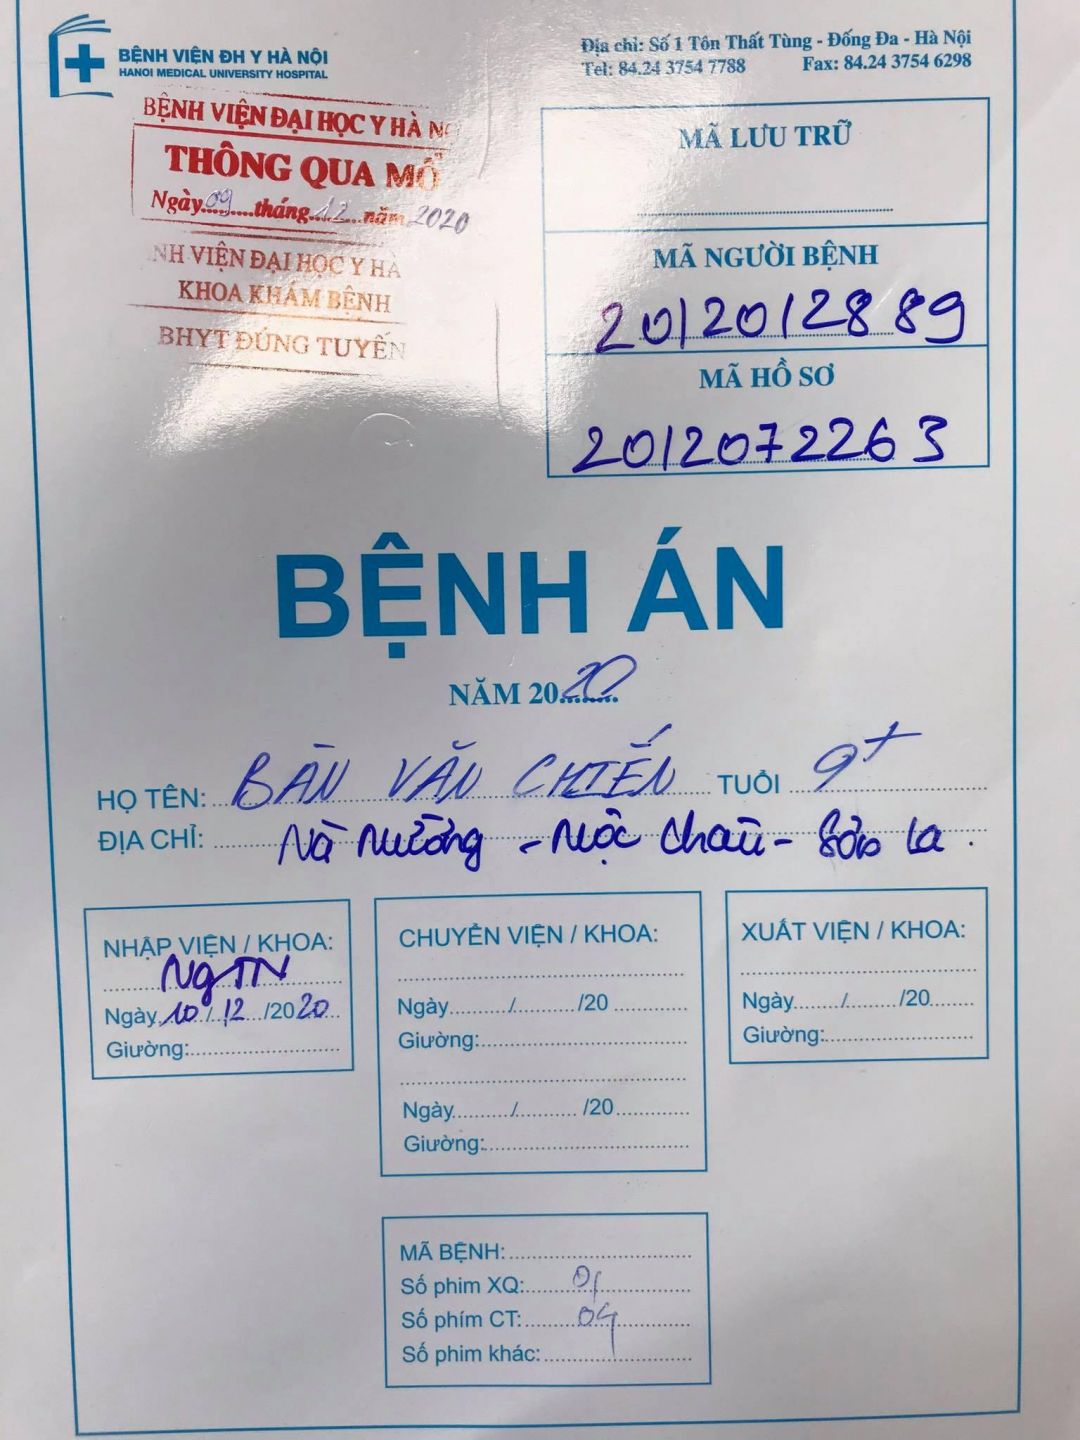 BỆNH VIỆN ĐH Y HÀ NỘI
HANOI MEDICAL UNIVERSITY HOSPITAL
Địa chỉ: Số 1 Tôn Thất Tùng - Đống Đa - Hà Nội
Tel: 84.24 3754 7788 Fax: 84.24 3754 6298
BỆNH VIỆN ĐẠI HỌC Y HÀ NỘ
THÔNG QUA MỔ
Ngày 09 tháng 12 năm 2020
NH VIỆN ĐẠI HỌC Y HÀ
KHOA KHÁM BỆNH
BHYT ĐÚNG TUYẾN
MÃ LƯU TRỮ
MÃ NGƯỜI BỆNH
2012012889
MÃ HỒ SƠ
2012072263
BỆNH ÁN
NĂM 2020
HỌ TÊN: BÀN VĂN CHIẾN TUỔI 9+
ĐỊA CHỈ: Nà Mường - Mộc Châu - Sơn La.
NHẬP VIỆN / KHOA:
NgTN
Ngày 10/12/2020
Giường:
CHUYỂN VIỆN / KHOA:
Ngày / /20
Giường:
Ngày / /20
Giường:
XUẤT VIỆN / KHOA:
Ngày / /20
Giường:
MÃ BỆNH:
Số phim XQ: 01
Số phím CT: 04
Số phim khác: